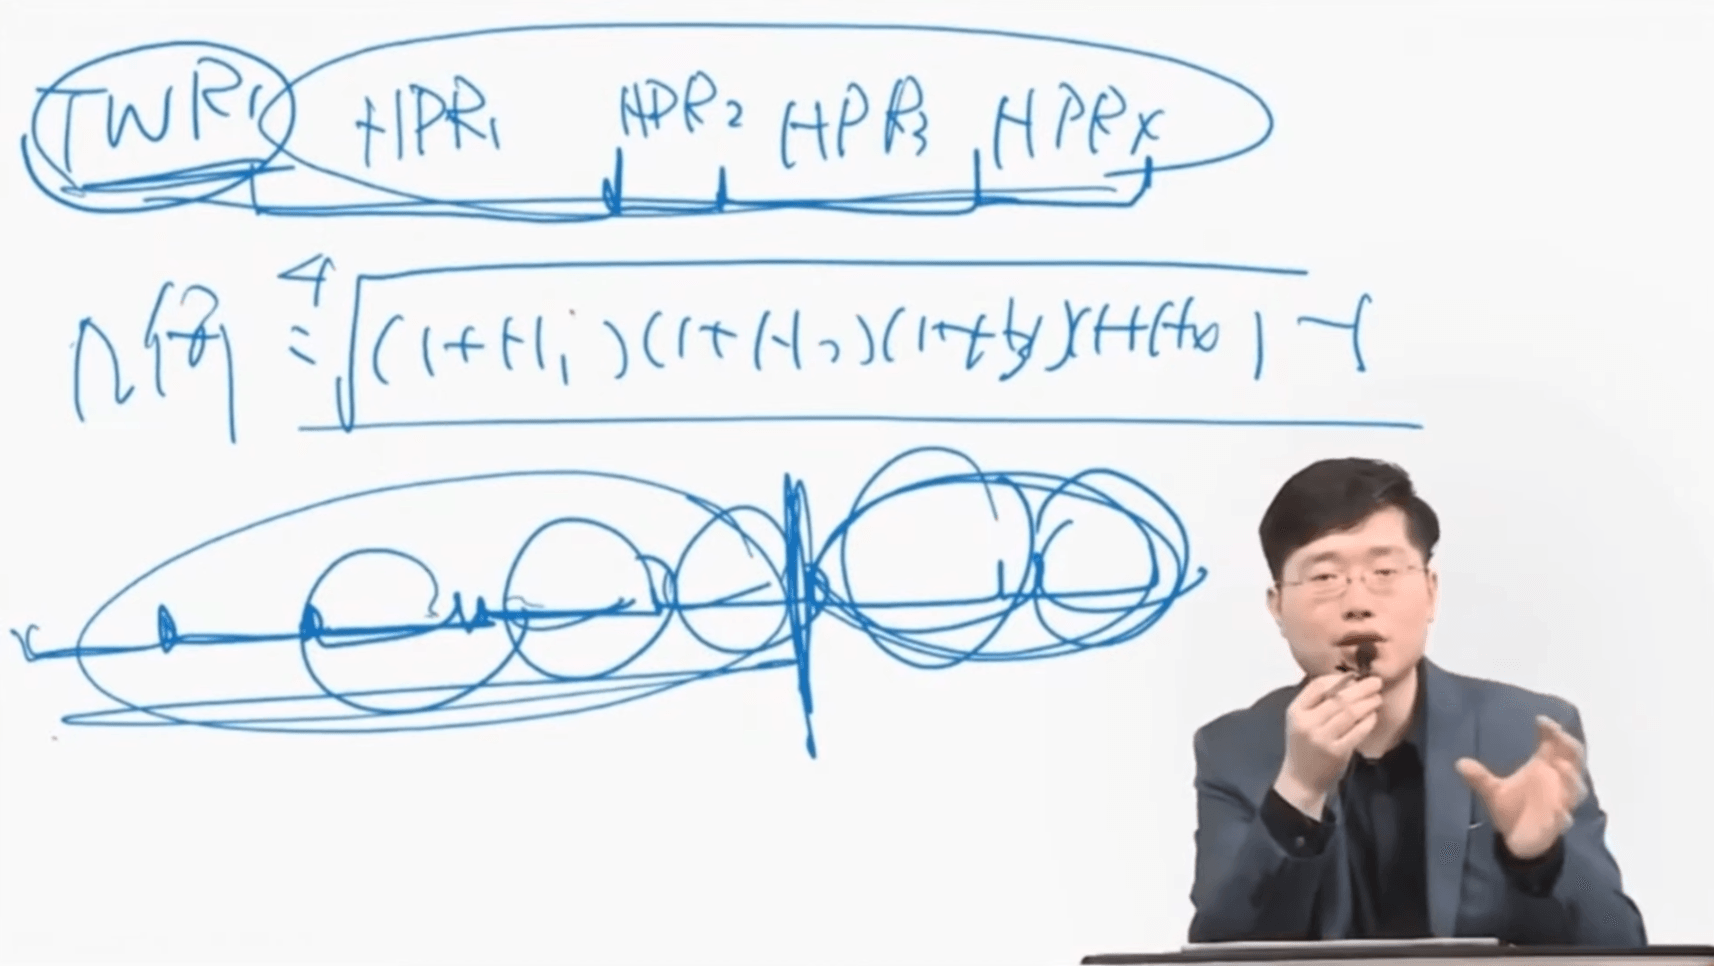 TWR₁ HPR₁ HPR₂ HPR₃ HPRx
= ⁴√(1+H₁)(1+H₂)(1+H₃)(1+H₀) -1